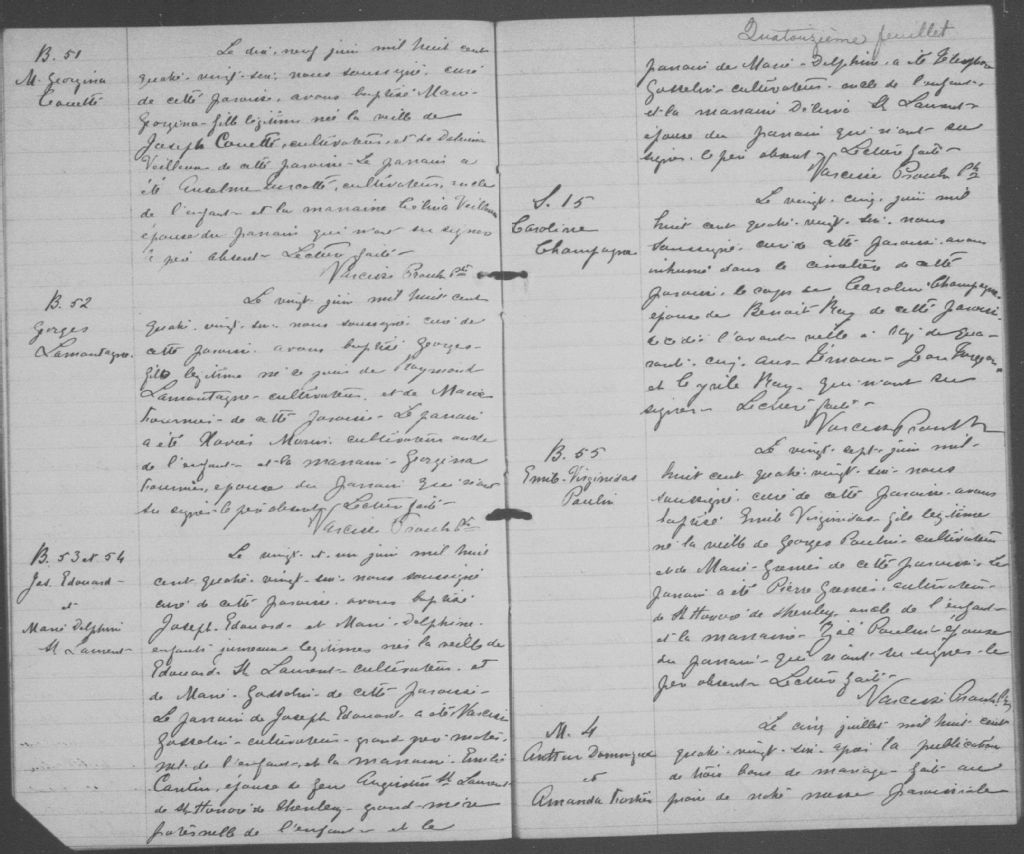 B. 51
M. Georgina
Couette
Le dix-neuf juin mil huit cent
quatre-vingt-six, nous soussigné, curé
de cette paroisse, avons baptisé Marie
Georgina fille légitime née la veille de
Joseph Couette, cultivateur, et de Delvina
Veilleux de cette paroisse. Le parrain a
été Anselme Turcotte, cultivateur, oncle
de l'enfant et la marraine Veilleux
épouse du parrain qui n'ont su signer
le père absent. Lecture faite
Narcisse Proulx Ptre
B. 52
Georges
Lamontagne
Le vingt juin mil huit cent
quatre-vingt-six nous soussigné curé de
cette paroisse avons baptisé Georges
fils légitime né ce jour de Raymond
Lamontagne cultivateur et de Marie
Fournier de cette paroisse. Le parrain
a été Xavier Morin cultivateur oncle
de l'enfant et la marraine Georgina
Fournier, épouse du parrain qui n'ont
su signer le père absent. Lecture faite
Narcisse Proulx Ptre
B. 53 et 54
Jos. Edouard
et
Marie Delphine
St Laurent
Le vingt-et-un juin mil huit
cent quatre-vingt-six nous soussigné
curé de cette paroisse avons baptisé
Joseph-Edouard et Marie-Delphine
enfants jumeaux légitimes nés la veille de
Edouard St Laurent cultivateur et
de Marie Gosselin de cette paroisse
Le parrain de Joseph Edouard a été Narcisse
Gosselin cultivateur grand père mater-
nel de l'enfant, et la marraine Emélie
Cantin, épouse de feu Augustin St Laurent
de St Honoré de Shenley grand-mère
paternelle de l'enfant et le
Quatorzième feuillet
parrain de Marie-Delphine a été
Gosselin cultivateur oncle de l'enfant
et la marraine Délina St Laurent
épouse du parrain qui n'ont su
signer le père absent. Lecture faite
Narcisse Proulx Ptre
S. 15
Caroline
Champagne
Le vingt-cinq juin mil
huit cent quatre-vingt-six nous
soussigné curé de cette paroisse avons
inhumé dans le cimetière de cette
paroisse le corps de Caroline Champagne
épouse de Benoit Roy de cette paroisse
décédée l'avant veille âgée de qua-
rante-cinq ans Témoins Jean
et Cyrile Roy qui n'ont su
signer. Lecture faite
Narcisse Proulx Ptre
B. 55
Emile-Virginidas
Poulin
Le vingt-sept juin mil
huit cent quatre-vingt-six nous
soussigné curé de cette paroisse avons
baptisé Emile Virginidas fils légitime
né la veille de Georges Poulin cultivateur
et de Marie Grenier de cette paroisse. Le
parrain a été Pierre Grenier, cultivateur
de St Honoré de Shenley oncle de l'enfant
et la marraine Zoé Poulin épouse
du parrain qui n'ont su signer le
père absent. Lecture faite
Narcisse Proulx Ptre
M. 4
Arthur Domingue
et
Amanda
Le cinq juillet mil huit cent
quatre-vingt-six après la publication
de trois bans de mariage faite au
prône de notre messe paroissiale